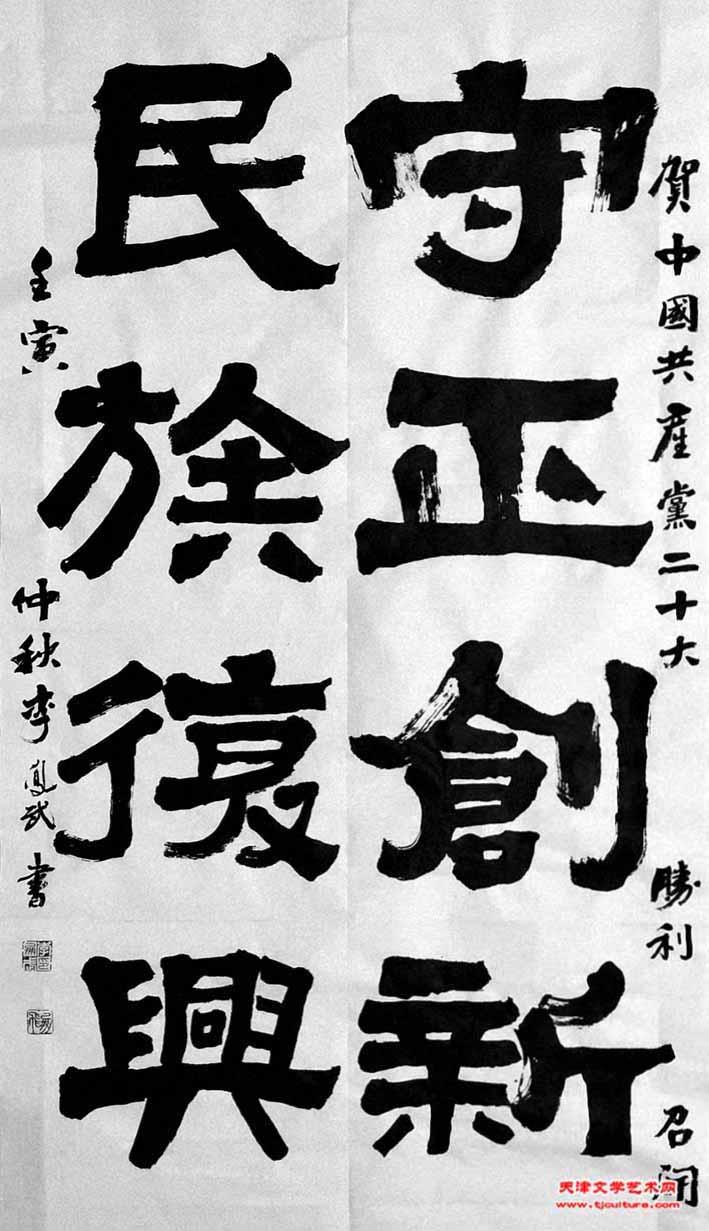 賀中國共產黨二十大勝利召開
守正創新
民族復興
壬寅仲秋李夏武書
天津文学艺术网
www.tjculture.com